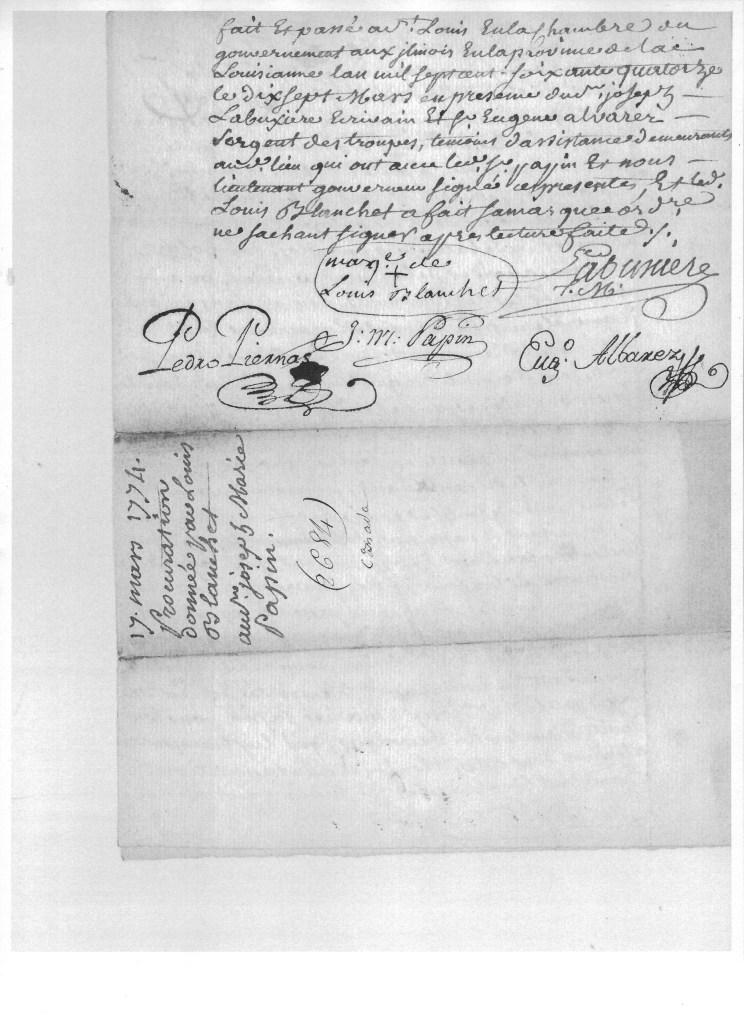 fait Et passé a St. Louis En la Chambre du
gouvernement aux ilinois En la province de la
Louisianne lan mil sept cent soixante quatorze
le dix sept Mars en presence du Sr. joseph
Labuxiere Ecrivain Et Sr Eugene alvarez
Sergent des troupes, temoins dassistance demeurants
aud. lieu qui ont avec led. Sr. papin Et nous
lieutenant gouverneur signé ces presentes, Et led.
Louis Blanchet a fait sa marque ordre.
ne sachant signer apres lecture faite ./.
marqe. de
+
Louis Blanchet
Labuxiere
Pedro Piernas
J: M: Papin
Eugo. Albarez
17. mars 1774.
Procuration
donnée par Louis
Blanchet
au Sr. joseph Marie
Papin.
(684)
Canada